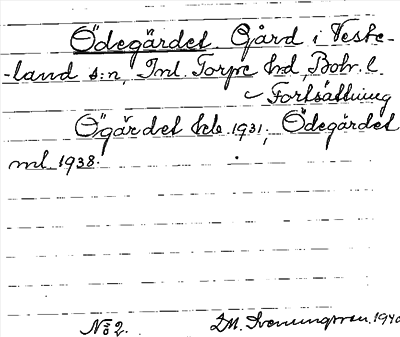 Ödegärdet. Gård i Veske-
-land s:n, Inl. Torpe hd, Boh. l.
Fortsättning
Ögärdet kb 1931, Ödegärdet
ml. 1938.
No 2. 1940